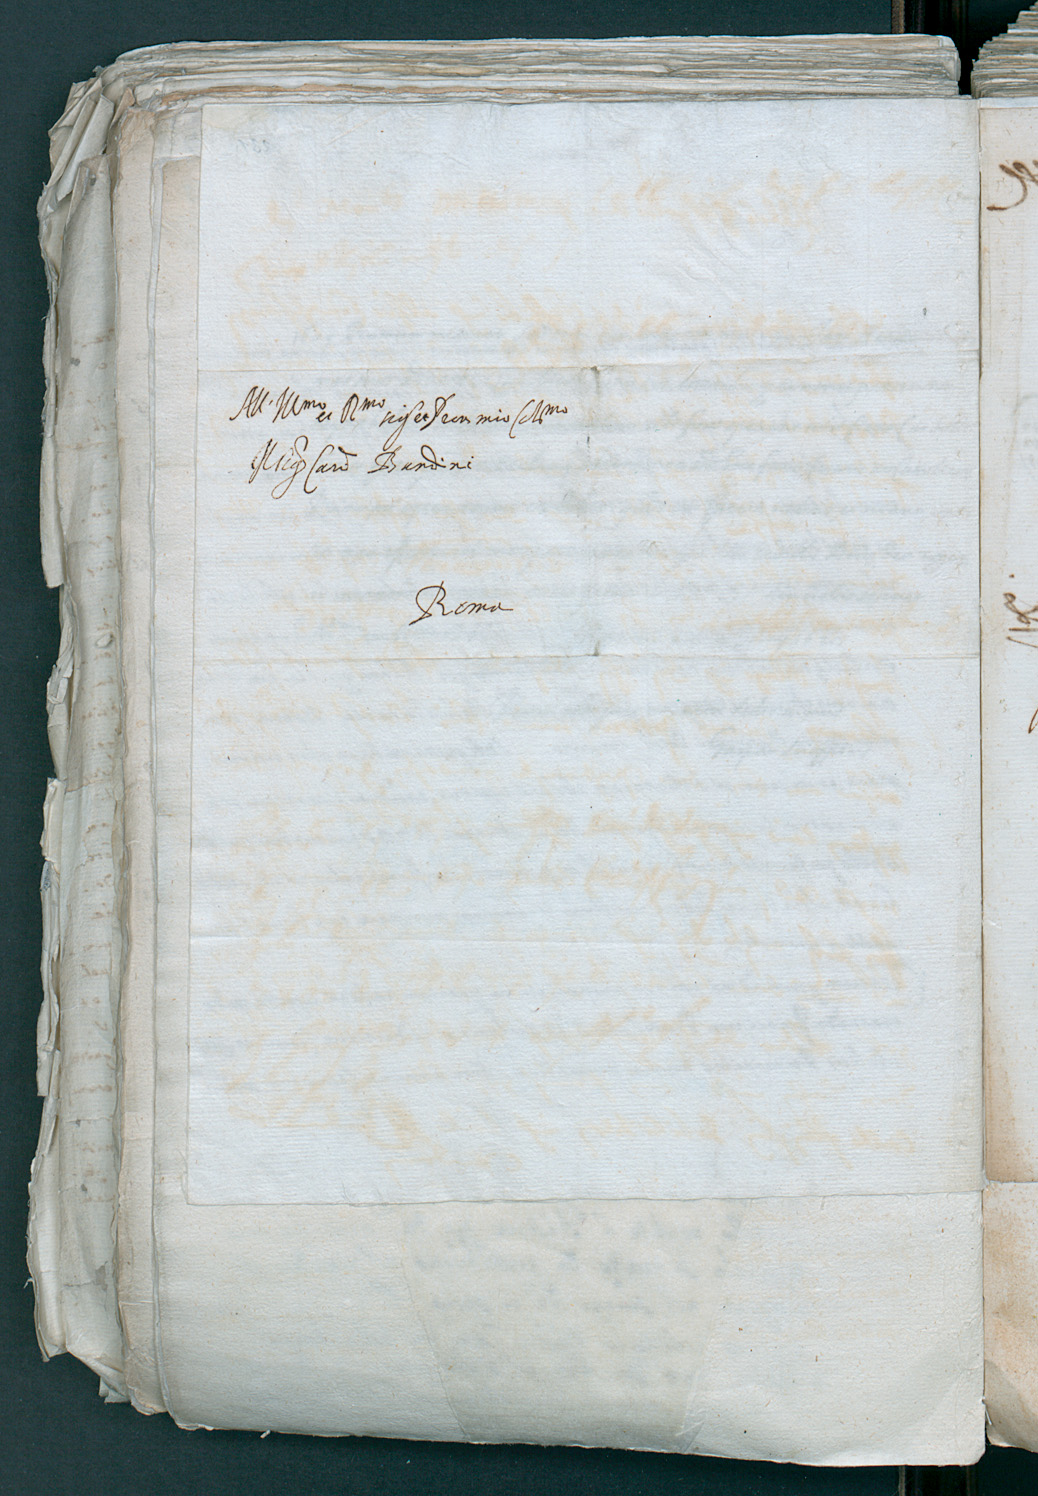 All' Ill.mo et R.mo Sig.re et Pron mio Col.mo
Il Sig.r Card Bandini
Roma